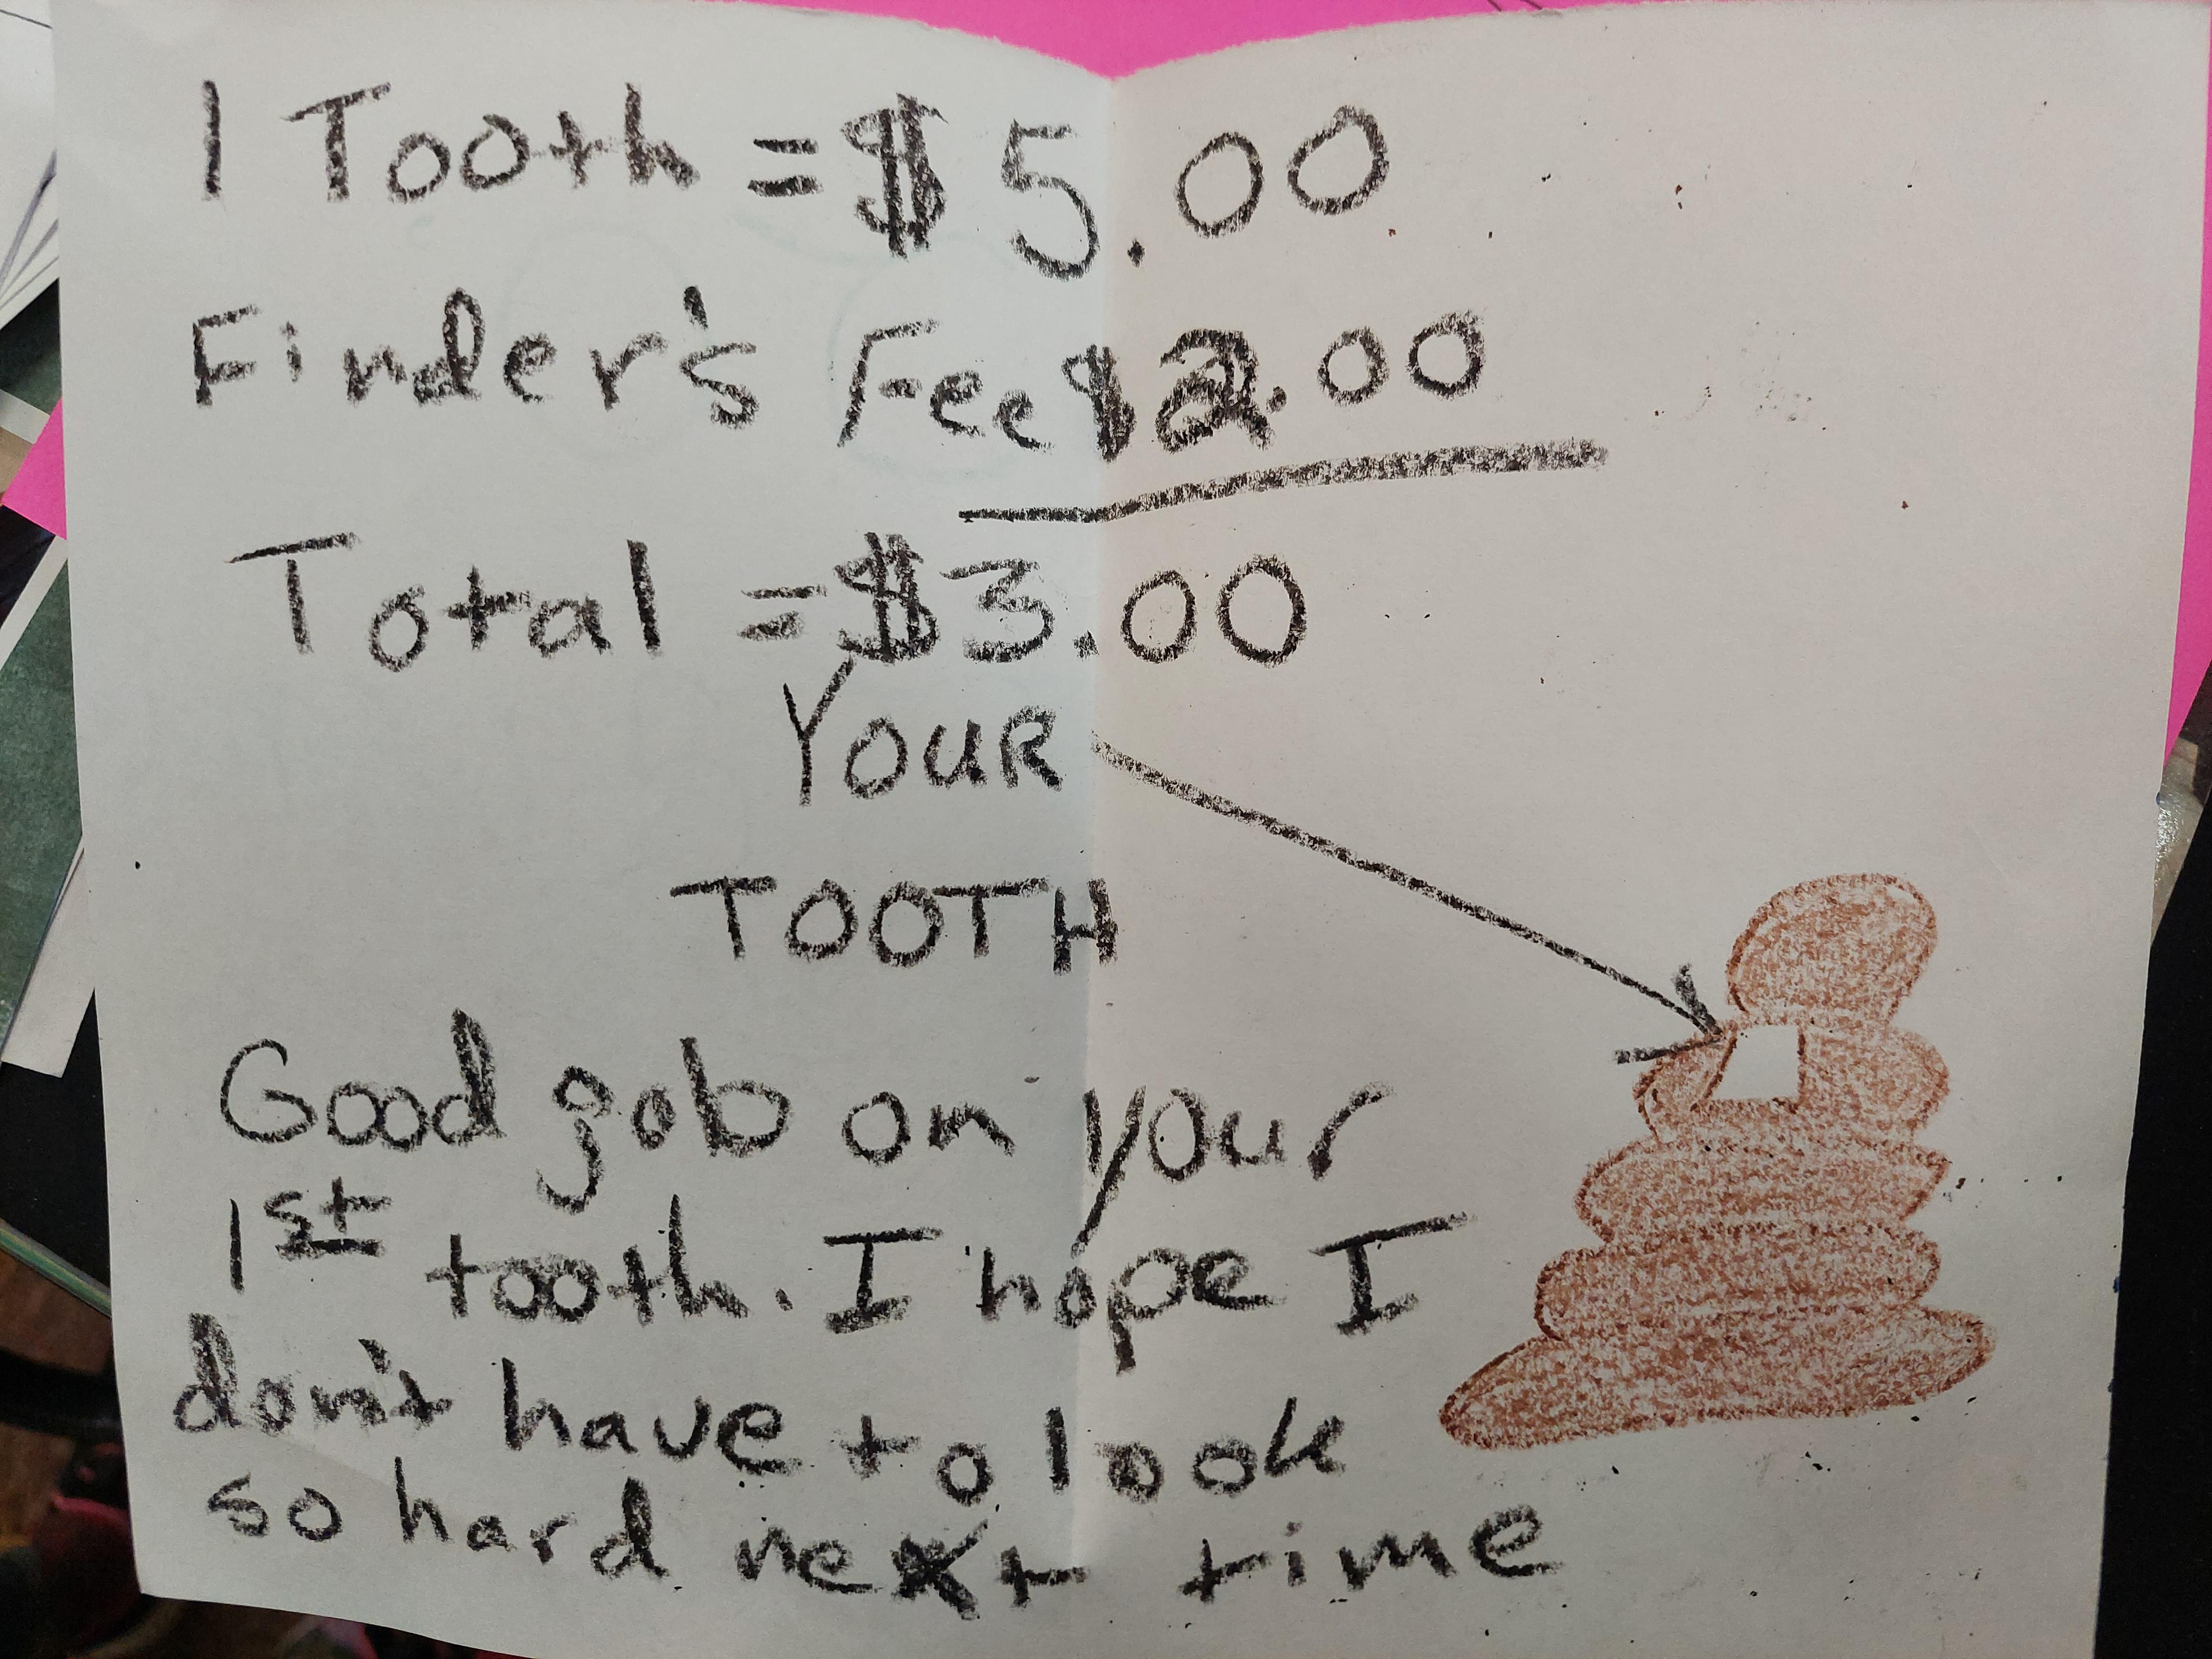 1 Tooth = $5.00
Finder's Fee $2.00
Total = $3.00
YOUR
TOOTH
Good job on your
1st tooth. I hope I
don't have to look
so hard next time